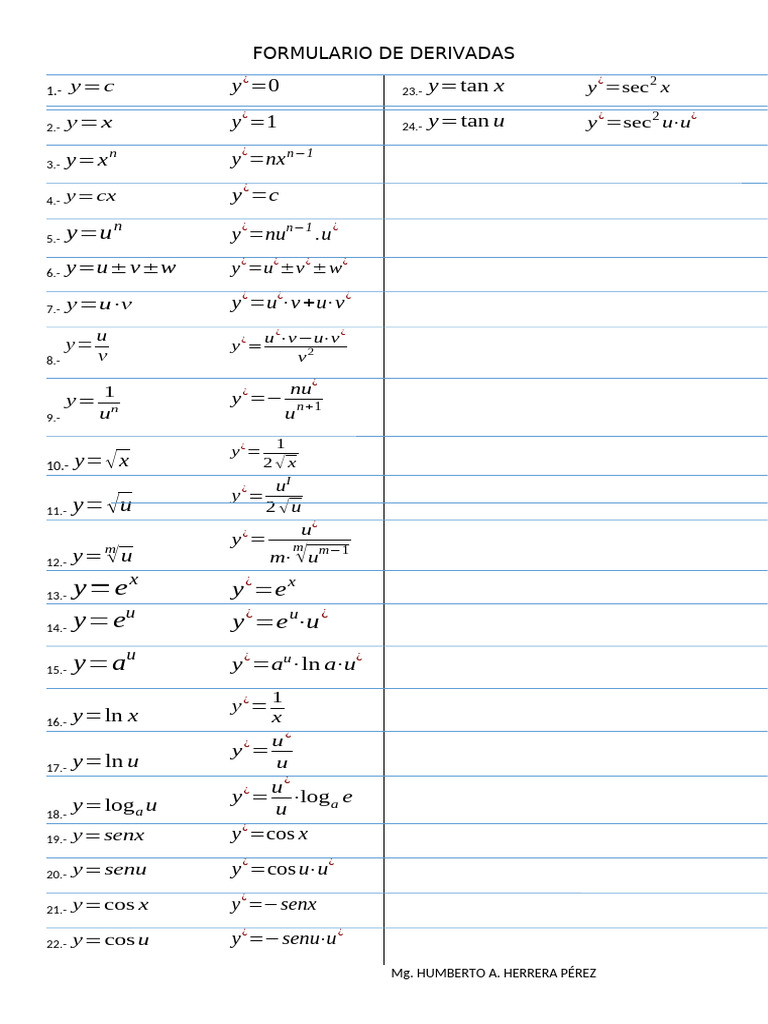 FORMULARIO DE DERIVADAS
1.- y=c y^¿=0
2.- y=x y^¿=1
3.- y=x^n y^¿=nx^(n−1)
4.- y=cx y^¿=c
5.- y=u^n y^¿=nu^(n−1).u^¿
6.- y=u±v±w y^¿=u^¿±v^¿±w^¿
7.- y=u·v y^¿=u^¿·v+u·v^¿
8.- y=u/v y^¿=(u^¿·v−u·v^¿)/v^2
9.- y=1/u^n y^¿=−nu^¿/u^(n+1)
10.- y=√x y^¿=1/(2√x)
11.- y=√u y^¿=u^I/(2√u)
12.- y=ᵐ√u y^¿=u^¿/(m·ᵐ√(u^(m−1)))
13.- y=e^x y^¿=e^x
14.- y=e^u y^¿=e^u·u^¿
15.- y=a^u y^¿=a^u·ln a·u^¿
16.- y=ln x y^¿=1/x
17.- y=ln u y^¿=u^¿/u
18.- y=log_a u y^¿=u^¿/u·log_a e
19.- y=senx y^¿=cos x
20.- y=senu y^¿=cos u·u^¿
21.- y=cos x y^¿=−senx
22.- y=cos u y^¿=−senu·u^¿
23.- y=tan x y^¿=sec^2 x
24.- y=tan u y^¿=sec^2 u·u^¿
Mg. HUMBERTO A. HERRERA PÉREZ